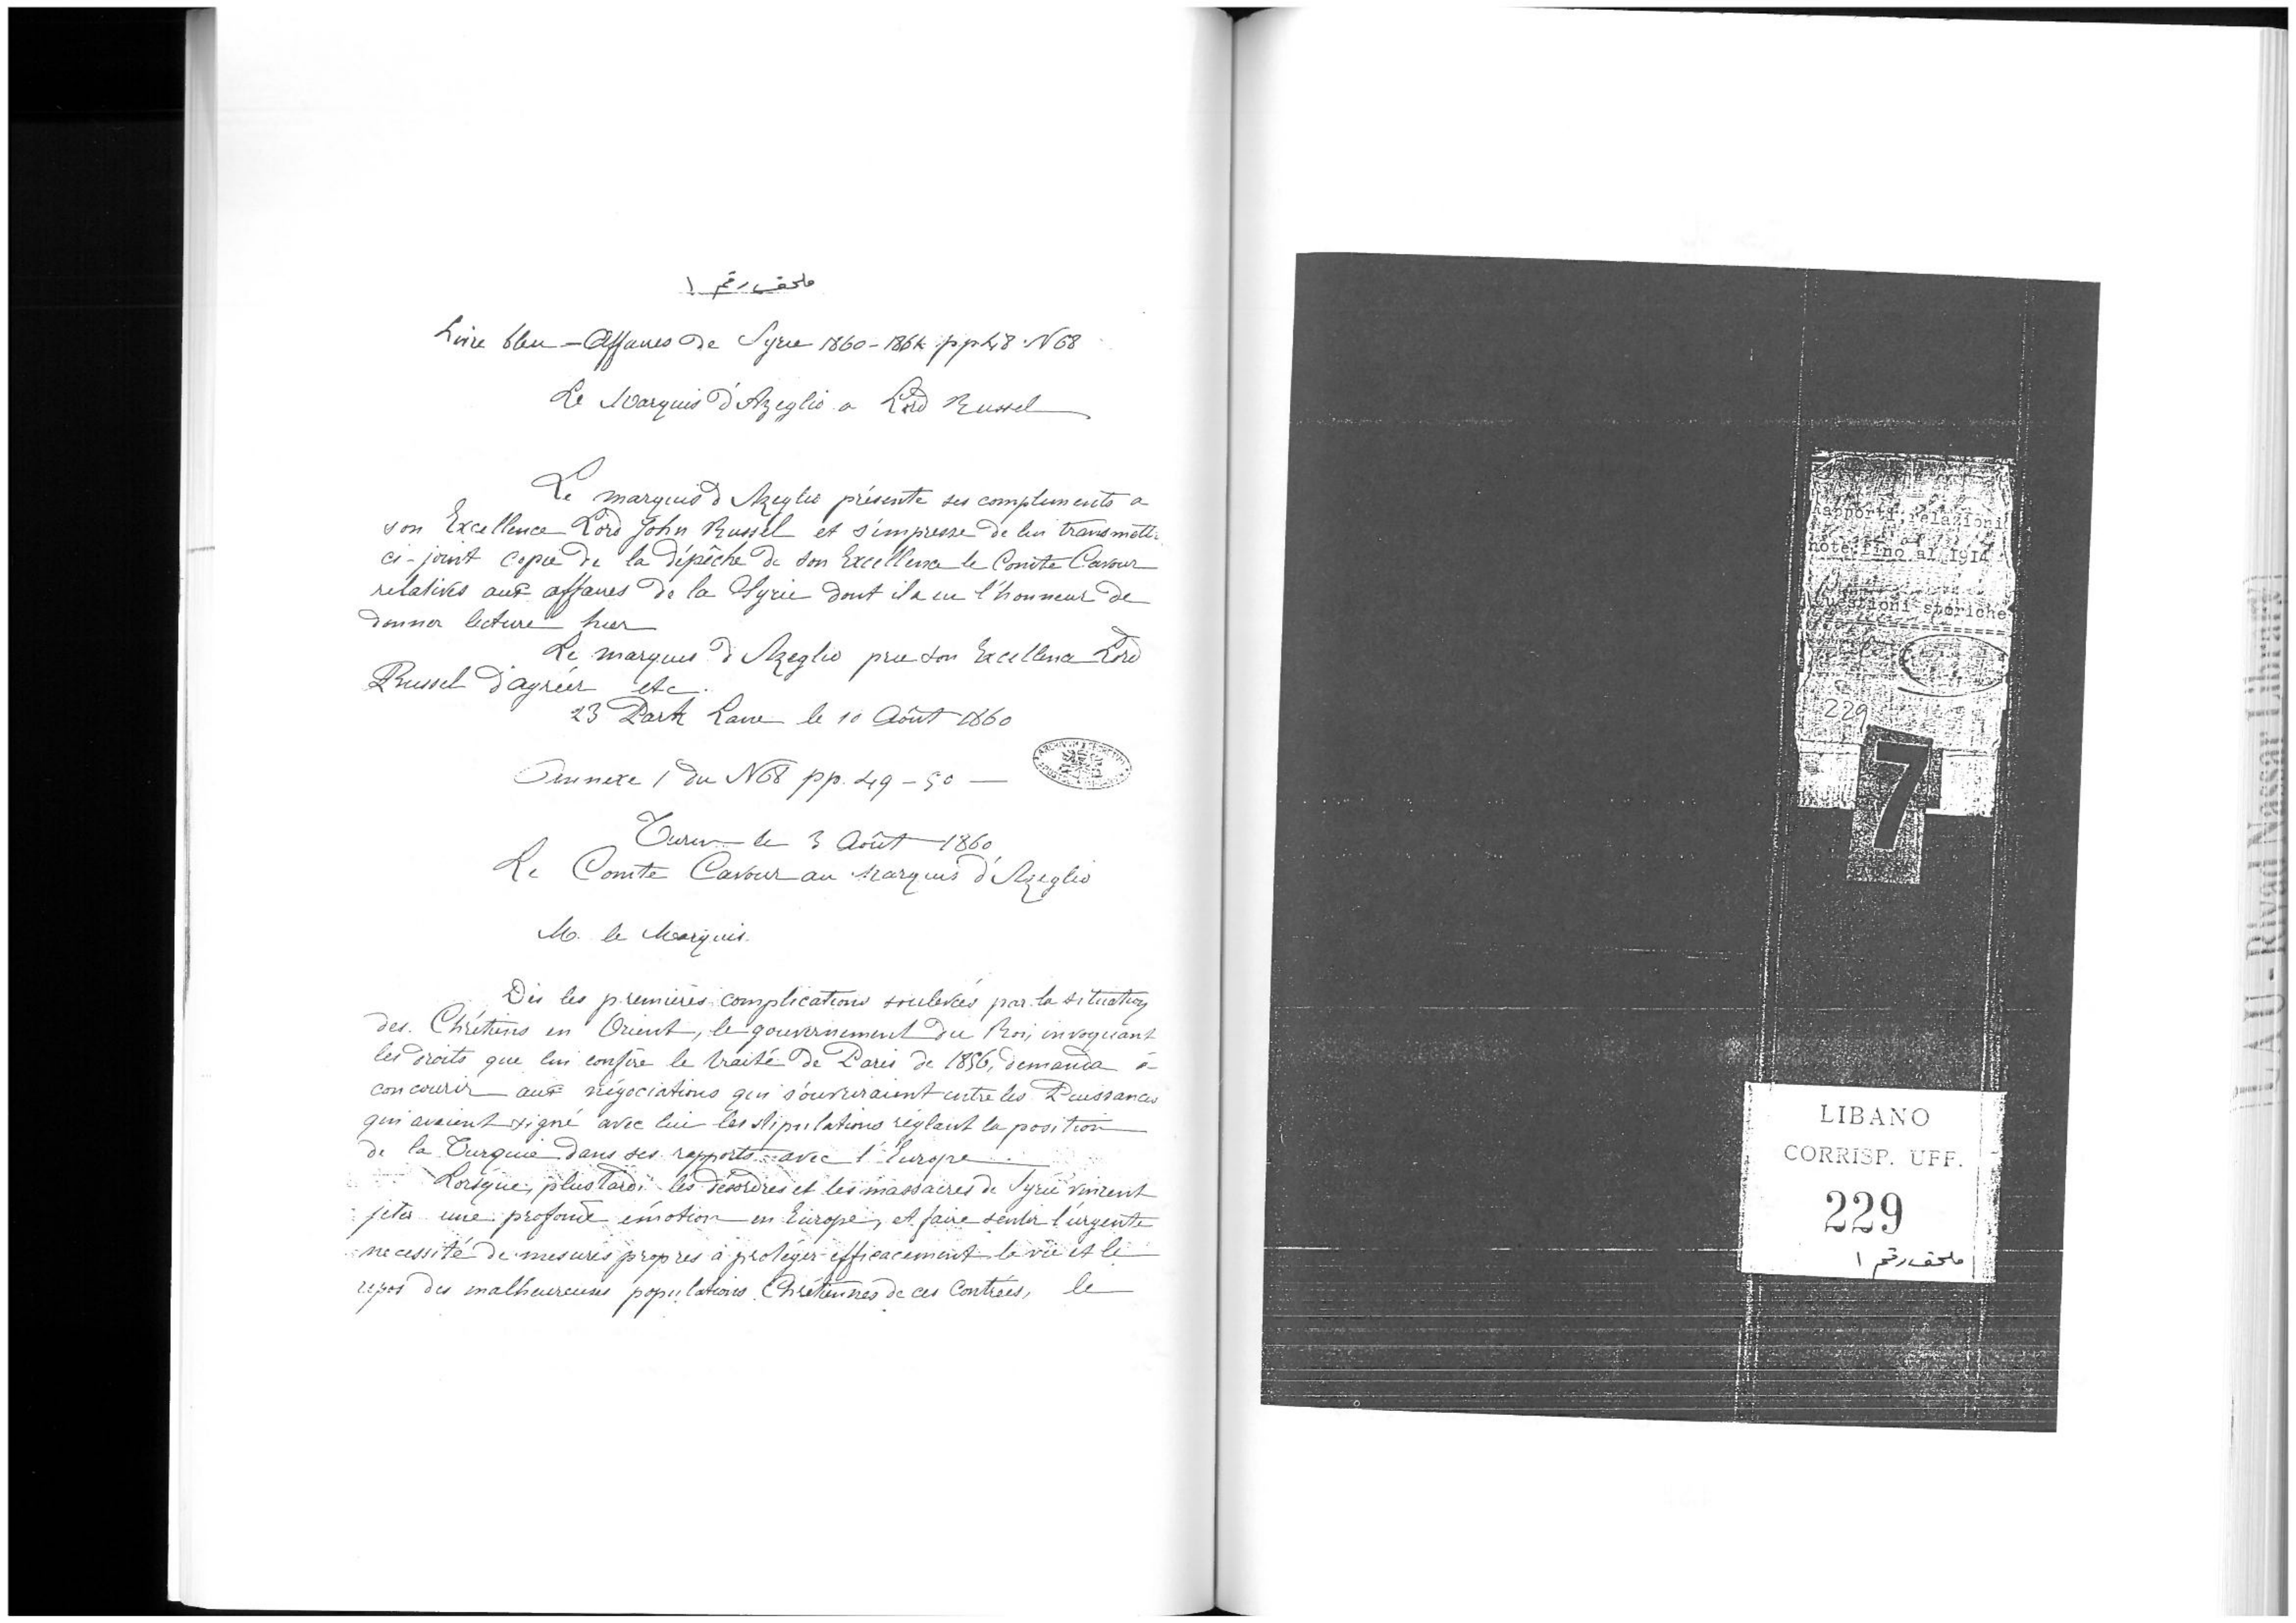 ملحق رقم ١
Livre bleu - Affaires de Syrie 1860 - 1861 pp 48 N 68
Le Marquis d'Azeglio a Lord Russel
Le marquis d'Azeglio présente ses compliments a
son Excellence Lord John Russel et s'impresse de lui transmettre
ci-joint copie de la dépêche de son Excellence le Comte Cavour
relatives aux affaires de la Syrie dont il a eu l'honneur de
donner lecture hier
Le marquis d'Azeglio prie son Excellence Lord
Russel d'agréer etc.
23 Park Lane le 10 Août 1860
Annexe 1 du N68 pp. 49 - 50 -
Turin le 3 Août 1860
Le Comte Cavour au Marquis d'Azeglio
M. le Marquis.
Dès les premières complications soulevées par la situation
des Chrétiens en Orient, le gouvernement du Roi, invoquant
les droits que lui confère le traité de Paris de 1856, demanda à
concourir aux négociations qui s'ouvriraient entre les Puissances
qui avaient signé avec lui les stipulations réglant la position
de la Turquie dans ses rapports avec l'Europe.
Lorsque, plus tard, les désordres et les massacres de Syrie vinrent
jeter une profonde émotion en Europe, et faire sentir l'urgente
necessité de mesures propres à protéger efficacement la vie et le
repos des malheureuses populations Chrétiennes de ces Contrées, le
Rapporti, relazioni
note fino al 1914
Questioni storiche
229
7
LIBANO
CORRISP. UFF.
229
ملحق رقم ١
LAU - Riyad Nassar Library